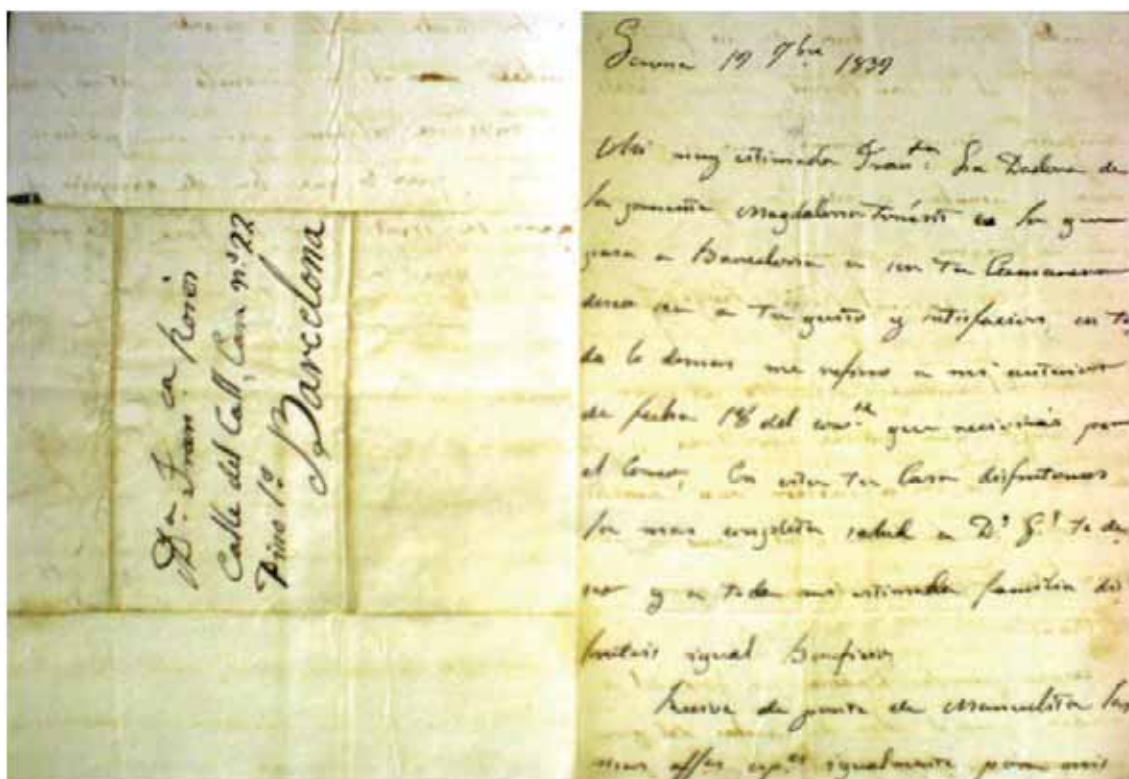 Dª. Franca Rosés
Calle del Call, Casa nº 22
Piso 1º
Barcelona
Gerona 19 7bre 1839
Mi muy estimada Franca: La Dadora de
la presente Magdalena es la que
pasa a Barcelona a ser tu Camarera
deseo sea a tu gusto y satisfacion, en to
do lo demas me refiero a mi anterior
de fecha 18 del corrte que recivirás por
el Correo. En esta tu Casa disfrutamos
la mas completa salud a Ds. Gs. te de
seo y a toda mi estimada familia dis
fruteis igual Beneficio
Recive de parte de Manuelita las
mas affas espnes igualmente para mis